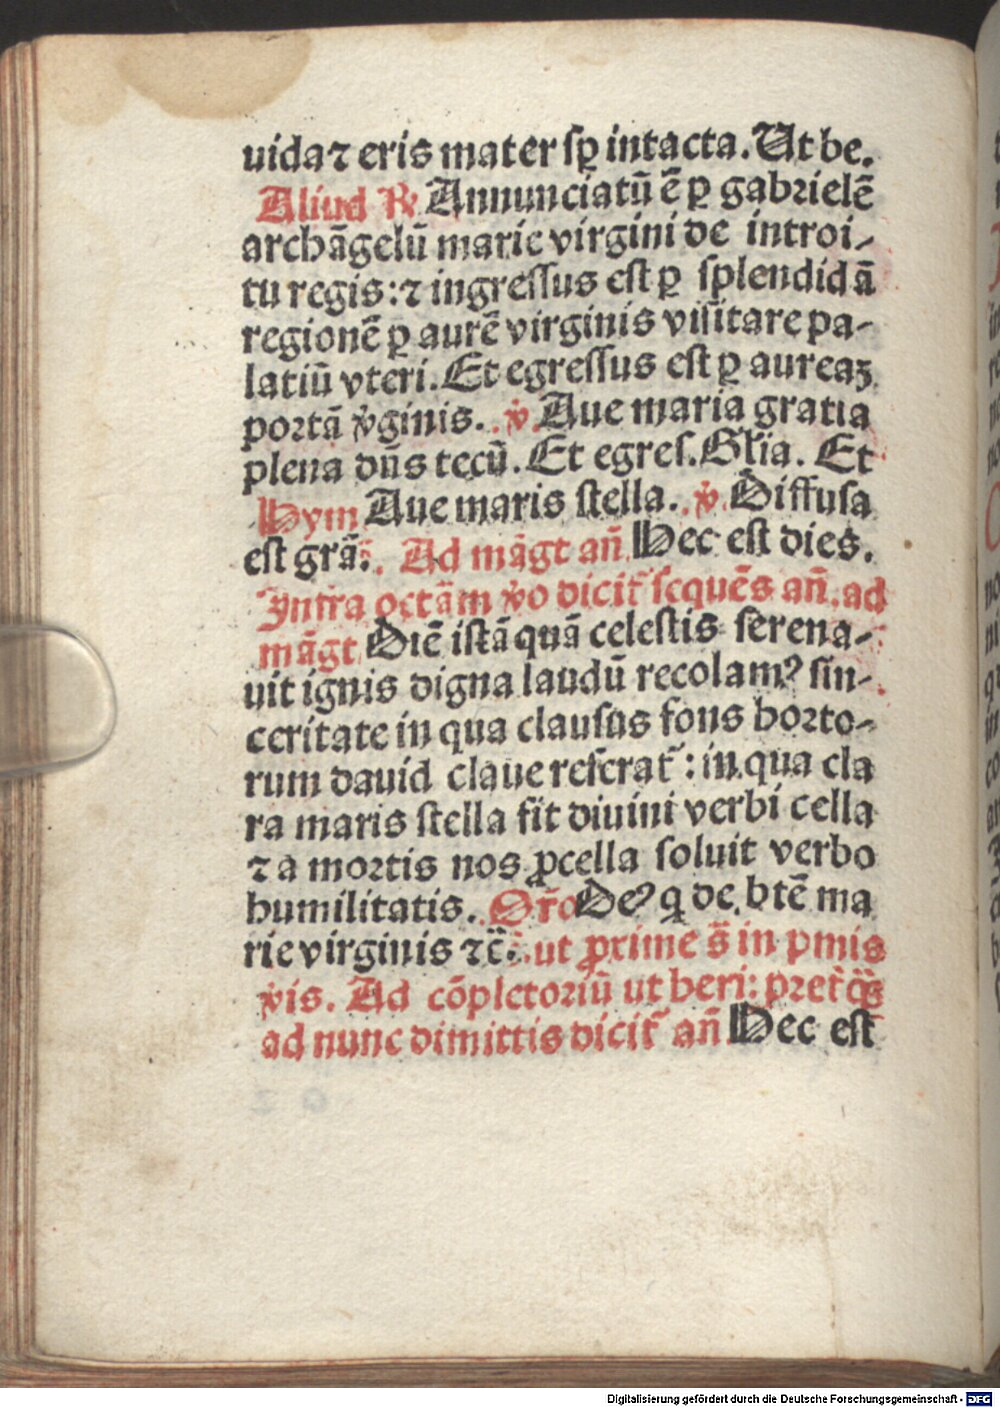 uida ⁊ eris mater sꝑ intacta. Ut be.
Aliud ℟. Annunciatū ē ꝑ gabrielē
archāgelū marie virgini de introi-
tu regis: ⁊ ingressus est ꝑ splendidā
regionē ꝑ aurē virginis visitare pa-
latiū vteri. Et egressus est ꝑ aureaꝫ
portā v̇ginis. v̇. Aue maria gratia
plena dn̄s tecū. Et egres. Gl̄ia. Et
Hym Aue maris stella. v̇. Diffusa
est grā. Ad māgt an̄ Hec est dies.
Intra octām v̇o dicit᷑ sequēs an̄. ad
māgt Diē istā quā celestis serena-
uit ignis digna laudū recolamꝰ sin-
ceritate in qua clausus fons horto-
rum dauid claue reserat᷑: in qua cla
ra maris stella fit diuini verbi cella
⁊ a mortis nos ꝓcella soluit verbo
humilitatis. Or̄o Deꝰ q̇ de btē ma
rie virginis ⁊c̄. ut ꝓxime s̄ in pmis
v̇is. Ad cōpletoriū ut heri: preť
ad nunc dimittis dicit᷑ an̄ Hec est
Digitalisierung gefördert durch die Deutsche Forschungsgemeinschaft - DFG